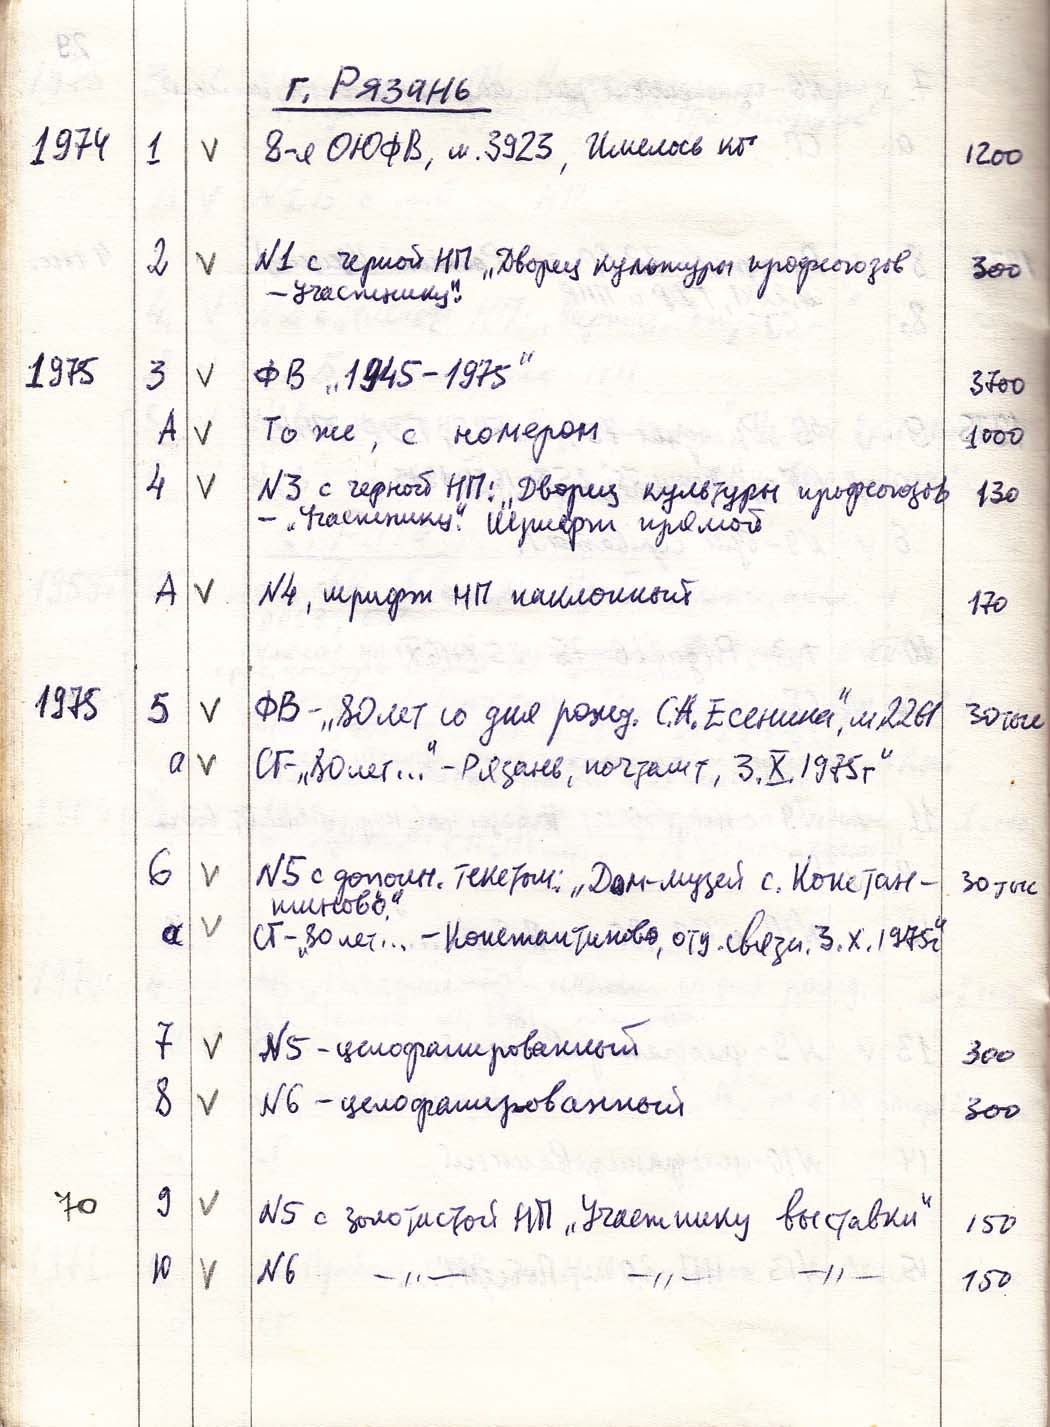 г. Рязань
1974 1 V 8-я ОЮФВ, м. 3923, Имелось кб 1200
2 V N1 с черной НП „Дворец культуры профсоюзов 300
– Участнику“.
1975 3 V ФВ „1945–1975“ 3700
А V То же, с номером 1000
4 V N3 с черной НП: „Дворец культуры профсоюзов 130
– „Участнику“. Шрифт прямой
А V N4, шрифт НП наклонный 170
1975 5 V ФВ – „80 лет со дня рожд. С.А. Есенина“, м 2261 30 тыс
а V СГ – „80 лет...“ – Рязань, почтамт, 3.X.1975г“
6 V N5 с дополн. текстом: „Дом-музей с. Констан- 30 тыс
тиново“.
а V СГ – „80 лет... – Константиново, отд. связи. 3.X.1975г“
7 V N5 – целофанированный 300
8 V N6 – целофанированный 300
70 9 V N5 с золотистой НП „Участнику выставки“ 150
10 V N6 – „ – – „ – – „ – 150